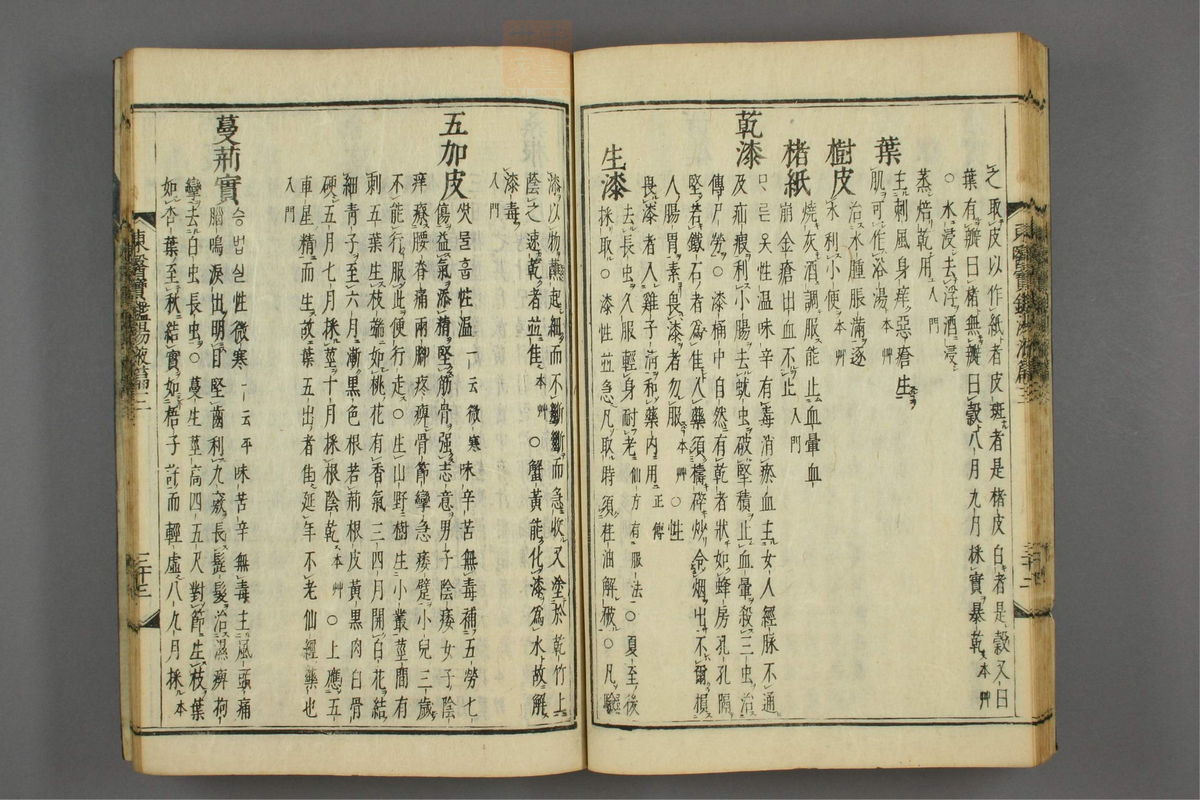 之取皮以作紙者皮斑者是楮皮白者是穀又曰
葉有瓣曰楮無瓣曰穀八月九月採實暴乾本艸
○水浸去浮酒浸
蒸焙乾用入門
葉
主刺風身痒惡瘡生
肌可作浴湯本艸
樹皮
治水腫脹滿逐
水利小便本艸
楮紙
燒灰酒調服能止血暈血
崩金瘡出血不止入門
乾漆
ᄆᆞ른옷性温味辛有毒消瘀血主女人經脉不通
及疝瘕利小腸去蚘虫破堅積止血暈殺三虫治
傳尸勞○漆桶中自然有乾者狀如蜂房孔孔隔
堅若鐵石者為佳入藥須擣碎炒令烟出不爾損
人腸胃素畏漆者勿服本艸○性
畏漆者人雞子清和藥内用正傳
生漆
去長虫久服輕身耐老仙方有服法○夏至後
採取○漆性並急凡取時須荏油解破○凡驗
漆以物蘸起細而不斷斷而急收又塗於乾竹上
蔭之速乾者並佳本艸○蟹黄能化漆為水故解
漆毒
入門
五加皮
ᄯᅡᆺ둘훕性温一云微寒味辛苦無毒補五勞七
傷益氣添精堅筋骨强志意男子陰痿女子陰
痒療腰脊痛兩脚疼痺骨節攣急痿躄小兒三歲
不能行服此便行走○生山野樹生小叢莖間有
刺五葉生枝端如桃花有香氣三四月開白花結
細青子至六月漸黑色根若荊根皮黄黑肉白骨
硬五月七月採莖十月採根陰乾本艸○上應五
車星精而生故葉五出者佳延年不老仙經藥也
入門
蔓荊實
승법실性微寒一云平味苦辛無毒主風頭痛
腦鳴淚出明目堅齒利九竅長髭髮治濕痺拘
攣去白虫長虫○蔓生莖高四五尺對節生枝葉
如杏葉至秋結實如梧子許而輕虛八九月採本
東醫寶鑑湯液篇三
三十三